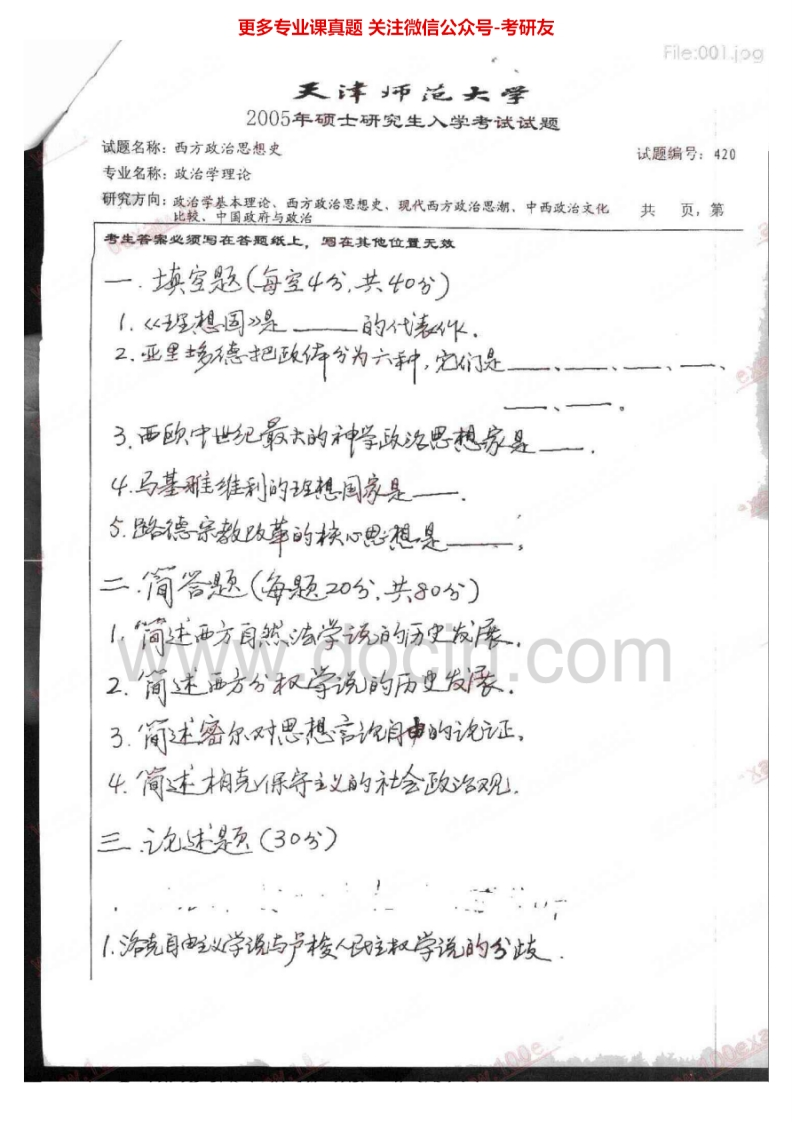 更多专业课真题 关注微信公众号-考研友
File:001.jpg
天津师范大学
2005年硕士研究生入学考试试题
试题名称：西方政治思想史
试题编号：420
专业名称：政治学理论
研究方向：政治学基本理论、西方政治思想史、现代西方政治思潮、中西政治文化
比较、中国政府与政治
共 页，第
考生答案必须写在答题纸上，写在其他位置无效
一.填空题(每空4分,共40分)
1.《理想国》是____的代表作.
2.亚里士多德把政体分为六种,它们是___、___、___、___、
___、___。
3.西欧中世纪最大的神学政治思想家是___.
4.马基雅维利的理想国家是___.
5.路德宗教改革的核心思想是____。
二.简答题(每题20分,共80分)
1.简述西方自然法学说的历史发展.
www.docin.com
2.简述西方分权学说的历史发展.
3.简述密尔对思想言论自由的论证。
4.简述柏克保守主义的社会政治观.
三.论述题(30分)
1.洛克自由主义学说与卢梭人民主权学说的分歧.